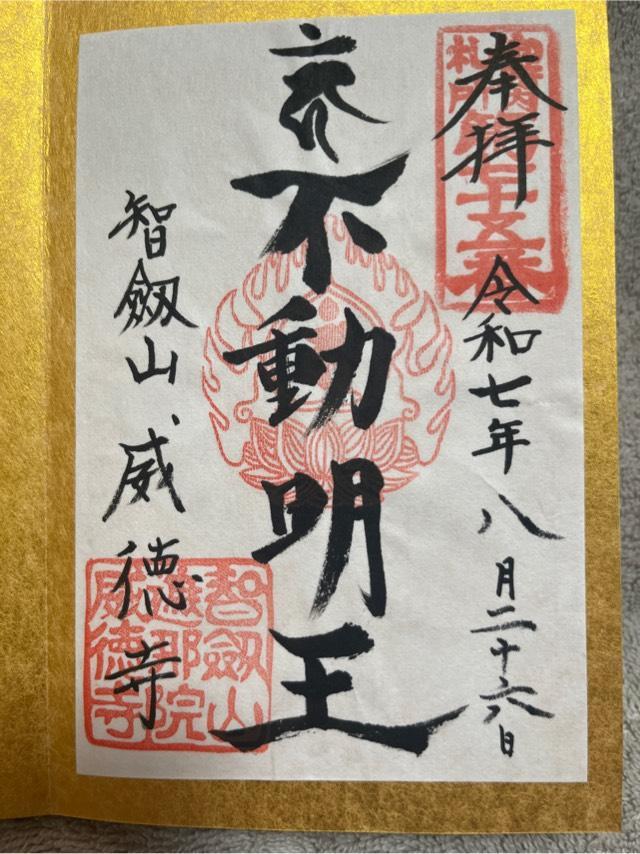 奉拝
令和七年八月二十六日
不動明王
智劔山 威徳寺
智劔山
遮那院
威徳寺